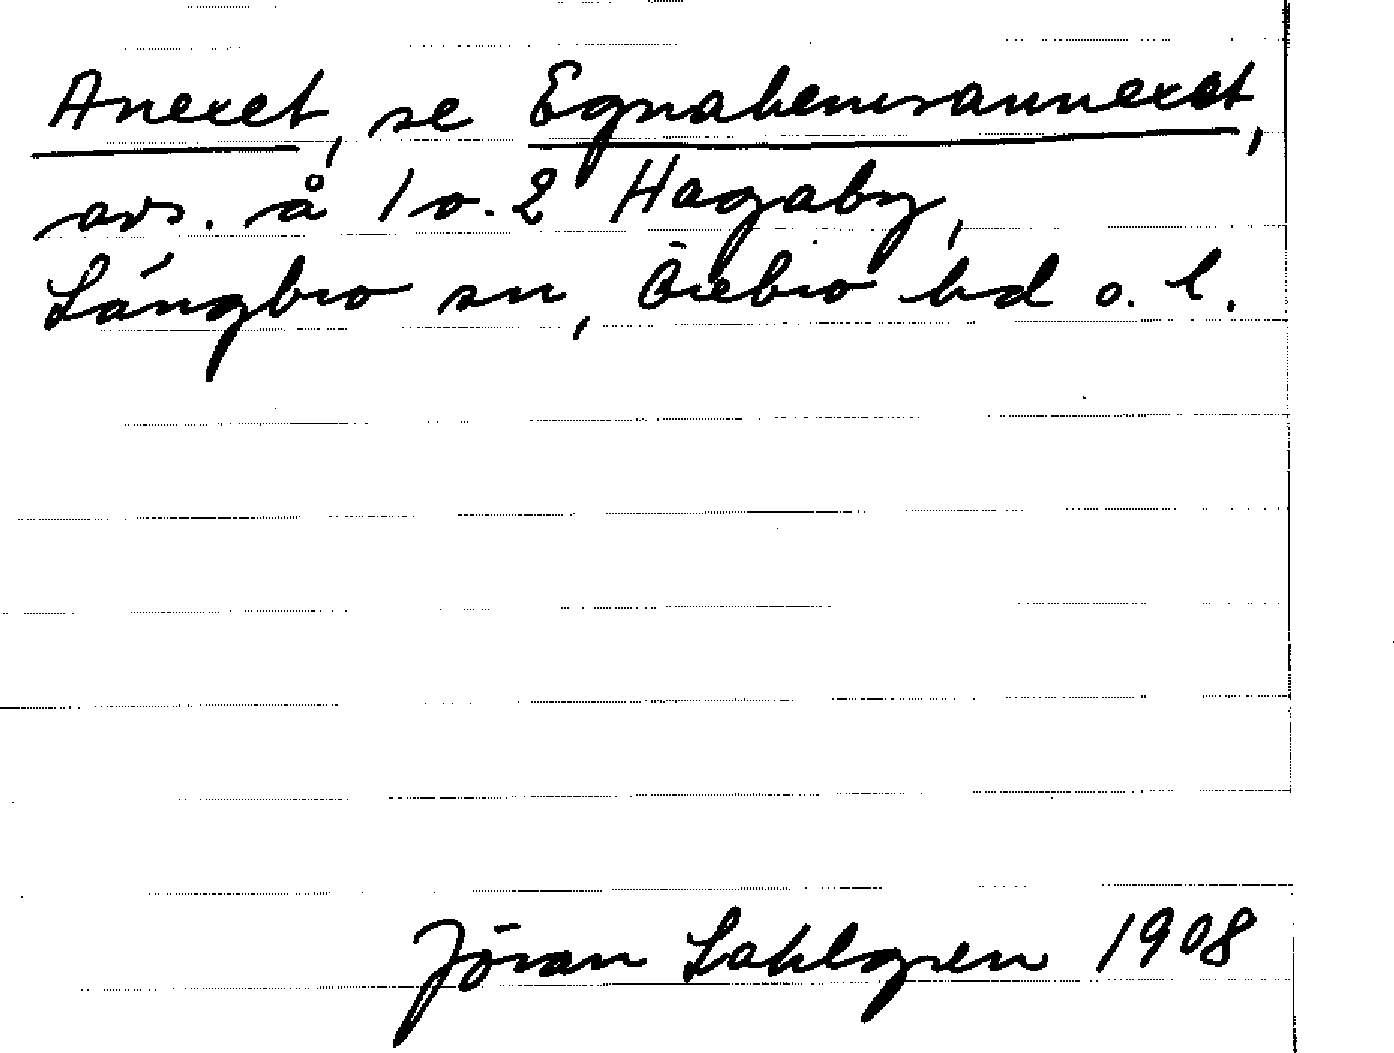 Anexet, se Egnahemsannexet,
avs. å 1 o. 2 Hagaby,
Långbro sn, Örebro hd o. l.
Jöran Sahlgren 1908